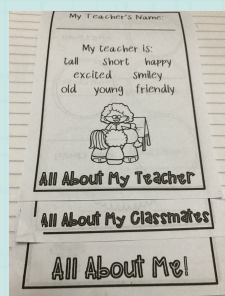 My Teacher's Name:
My teacher is:
tall short happy
excited smiley
old young friendly
All About My Teacher
All About My Classmates
All About Me!